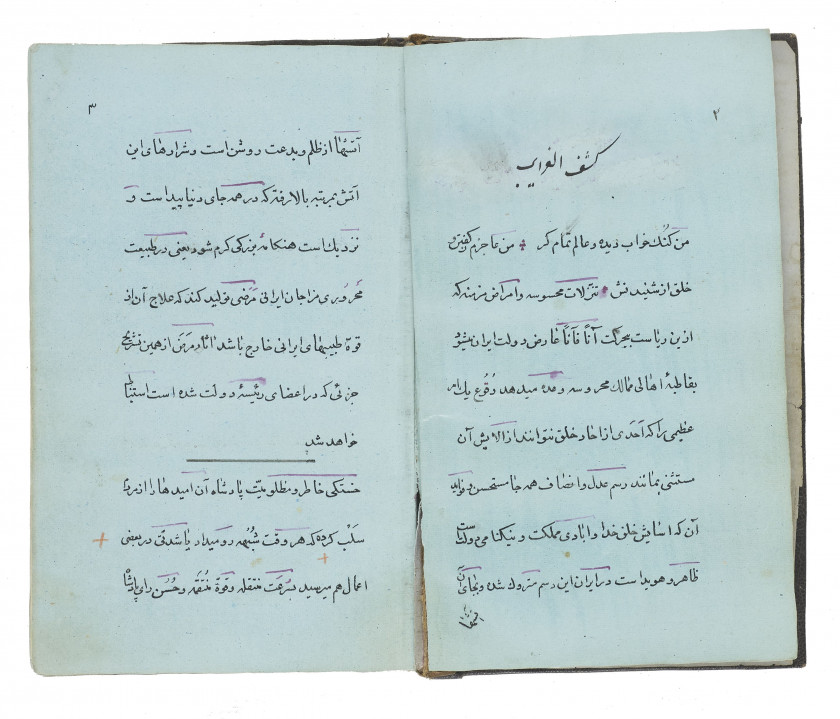 ۲
کشف الغرایب
من گنگ خواب دیده و عالم تمام کر من عاجزم ز گفتن و
خلق از شنیدنش تنزلات محسوسه و امراض مزمنه که
ازین ریاست بیحرکت آناً فآناً عارض دولت ایران میشود
بقاطبهٔ اهالی ممالک محروسه وعده میدهد وقوع یک امر
عظیمی را که احدی از احاد خلق نتوانند از الایش آن
مستثنی بمانند رسم عدل و انصاف همه جا مستحسن و فواید
آن که اسایش خلق خدا و ابادی مملکت و نیکنامی دولت است
ظاهر و هویدا است در ایران این رسم متروک شده و بجای آن
۳
آتشها از ظلم و بدعت روشن است و شرارهای این
آتش بمرتبه بالا رفته که در همه جای دنیا پیدا است و
نزدیک است هنکامهٔ بزرکی کرم شود یعنی در طبیعت
محروری مزاجان ایرانی مرضی تولید کند که علاج آن از
قوهٔ طبیبهای ایرانی خارج باشد اثار مرض از همین تشریح
جزئی که در اعضای رئیسهٔ دولت شده است استنباط
خواهد شد
خستکی خاطر و مظلومیت پادشاه آن امیدها را از مردم
سلب کرده که هر وقت شبهه در میداد یا شدتی در بعضی
اعمال هم میرسید بسرعت منتقله و قوة منتقمه و حسن رای پادشاه